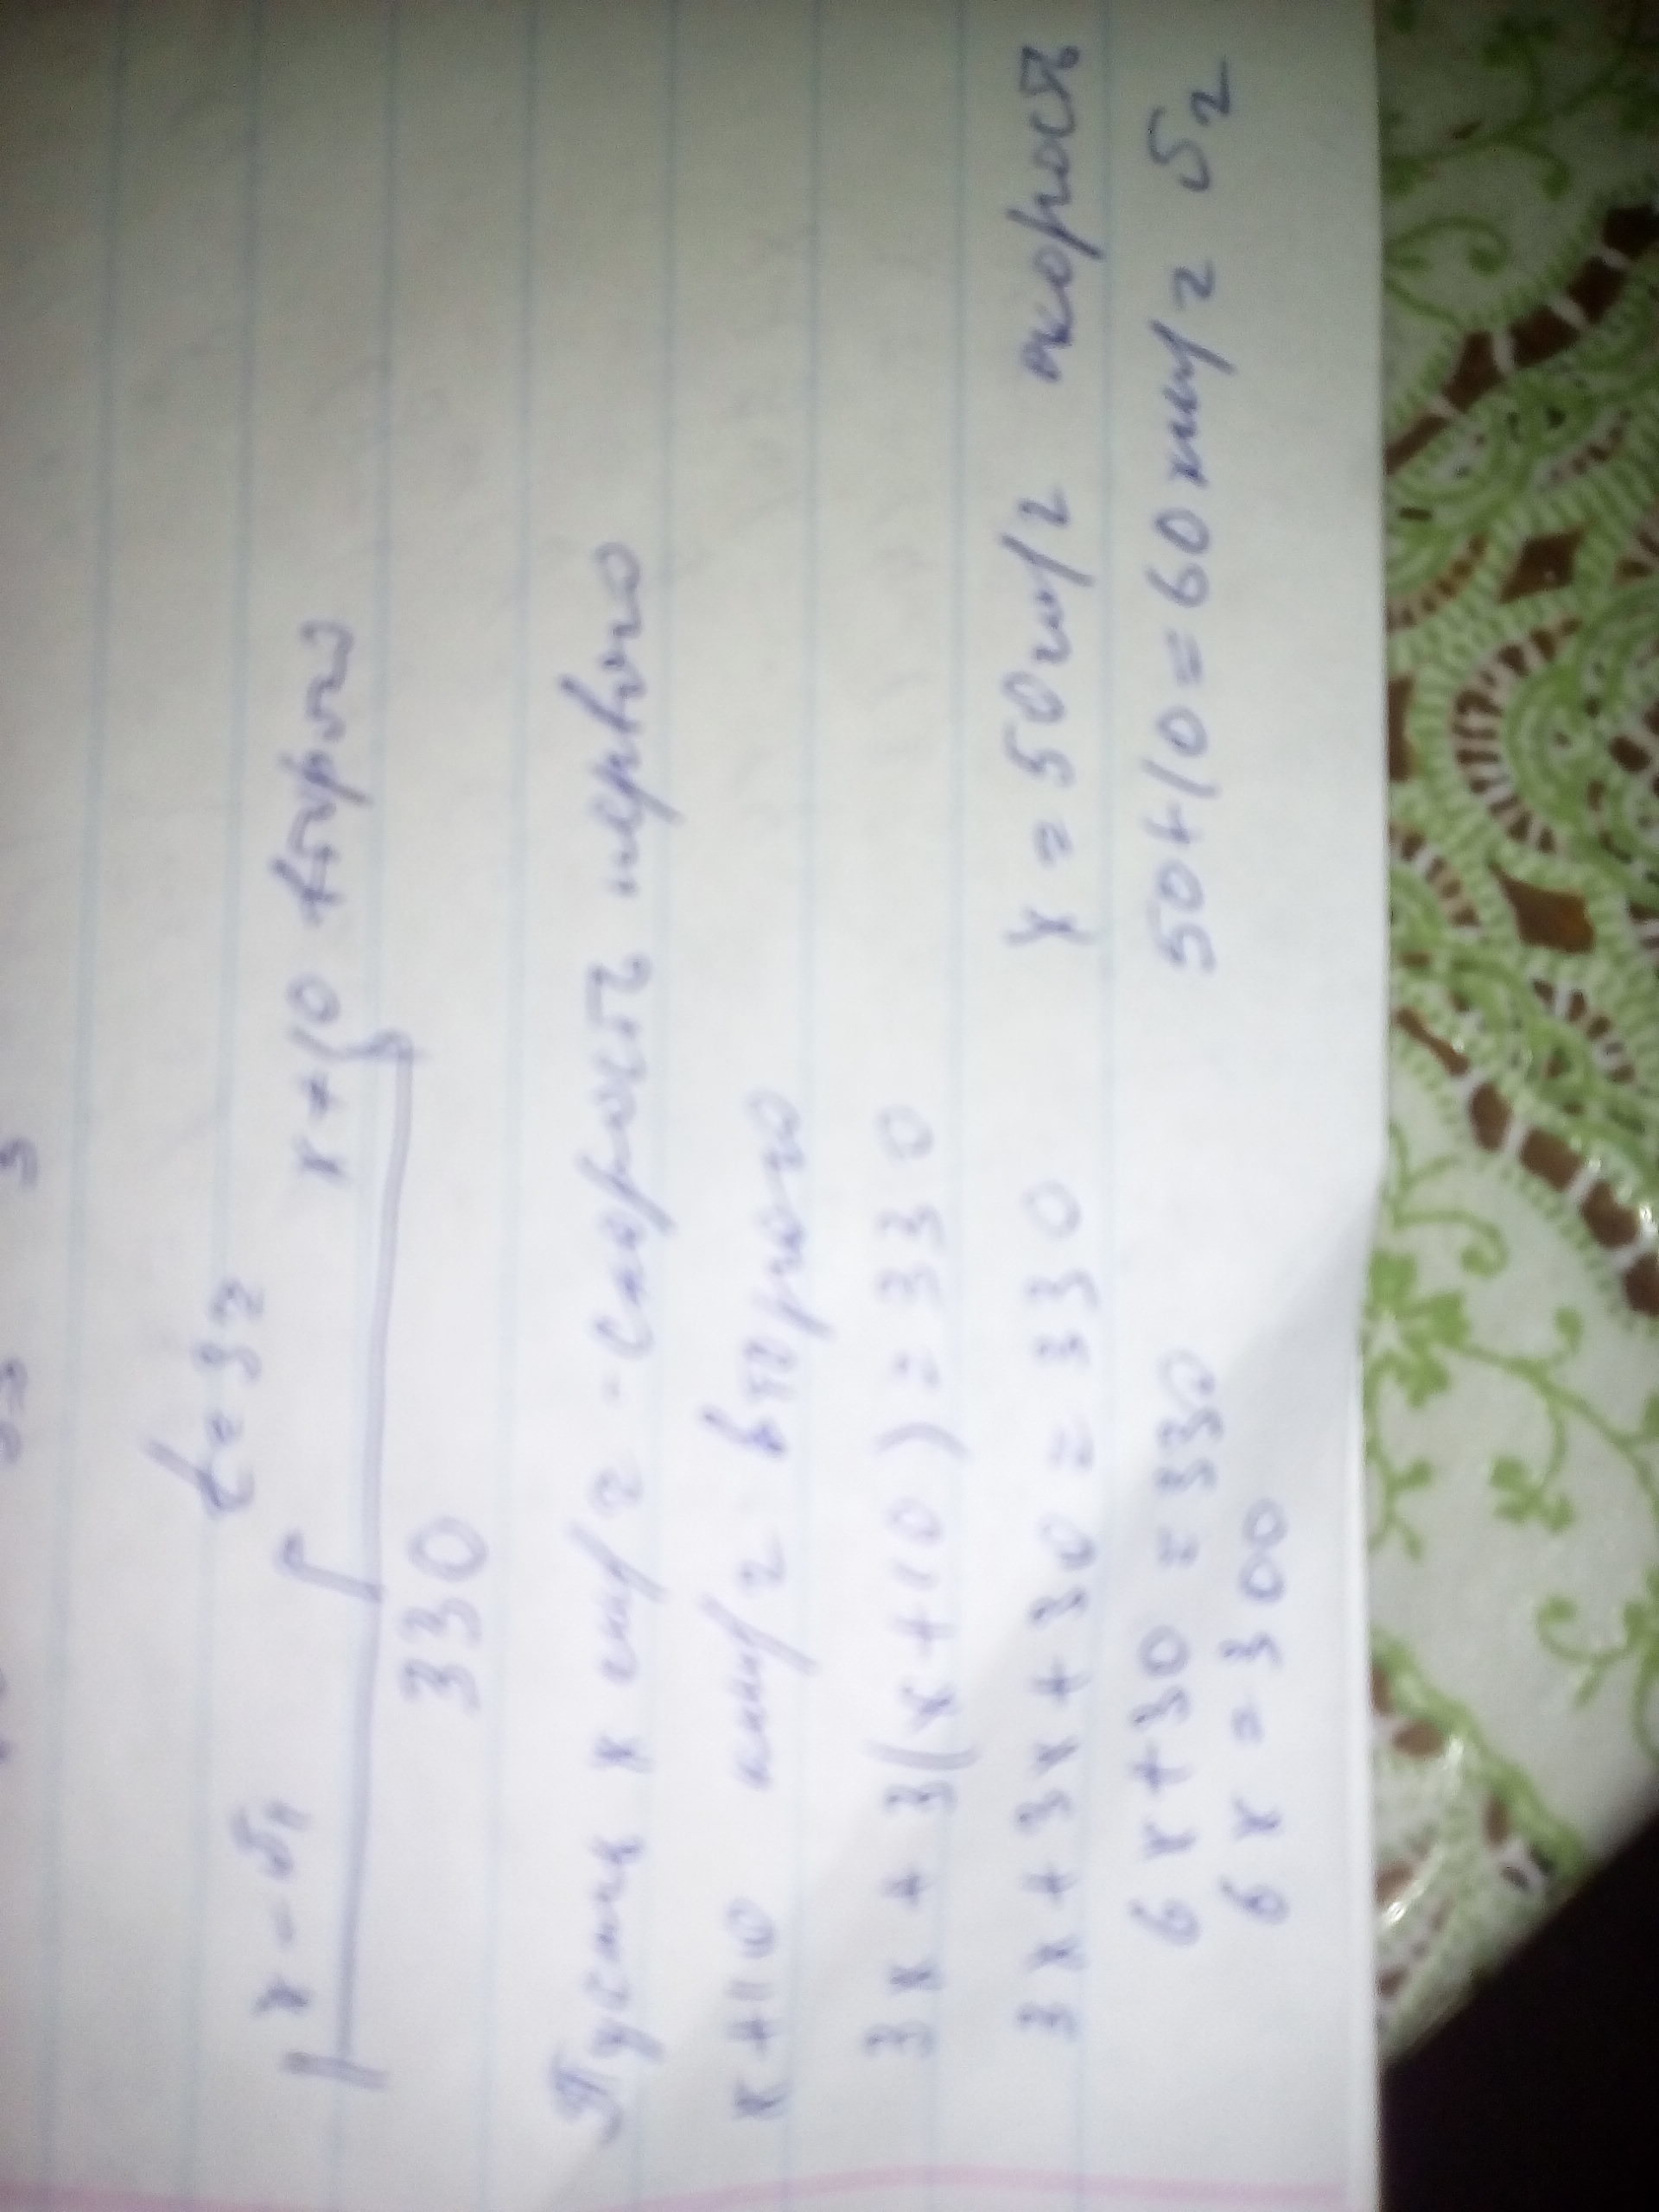 x - v₁ t = 3 ч x + 10 второго
330
Пусть x км/ч - скорость первого
x + 10 км/ч второго
3x + 3(x + 10) = 330
3x + 3x + 30 = 330 x = 50 км/ч скорость
6x + 30 = 330 50 + 10 = 60 км/ч v₂
6x = 300